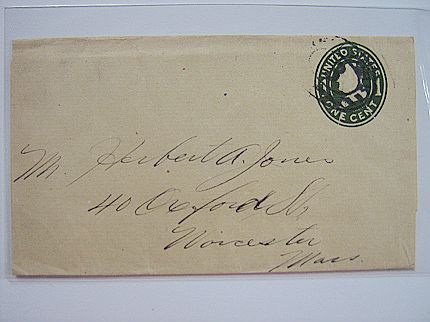 UNITED STATES
1
ONE CENT
Mr. Herbert A. Jones
40 Oxford St,
Worcester
Mass.